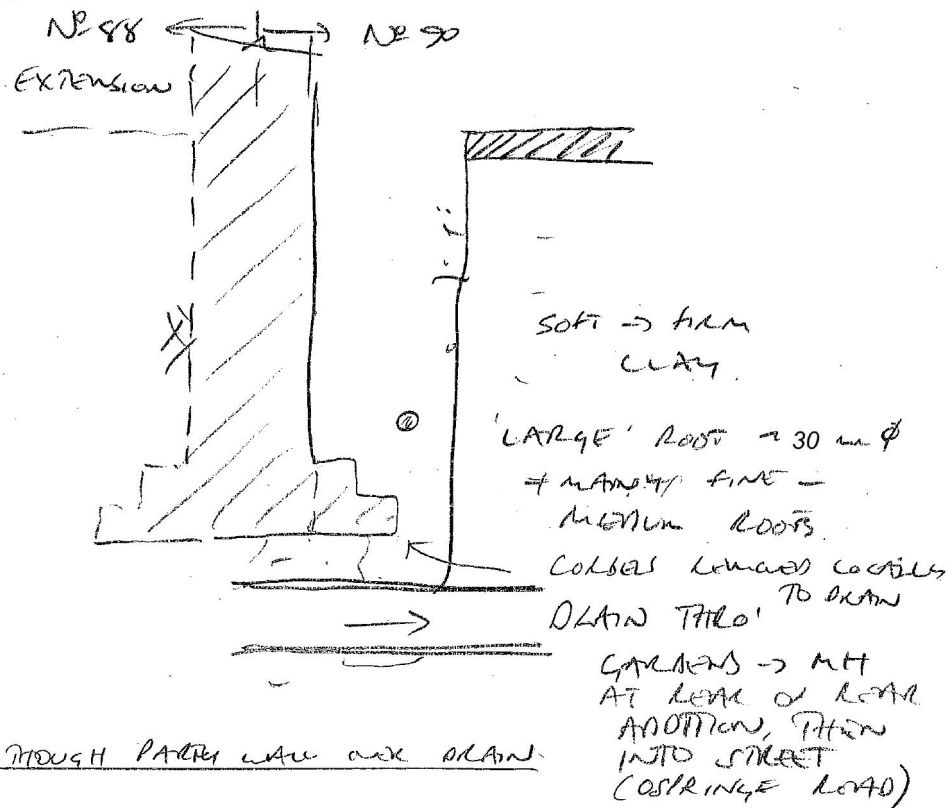 Nº 88
Nº 90
EXTENSION
SOFT → FIRM
CLAY.
'LARGE' ROOT ~ 30 mm φ
+ MAINLY FINE –
MEDIUM ROOTS.
CORBELS REMOVED LOCALLY
TO DRAIN
DRAIN THRO'
GARDENS → MH
AT REAR OF REAR
ADDITION, THEN
INTO STREET
(OSPRINGE ROAD)
THOUGH PARTY WALL OVER DRAIN.